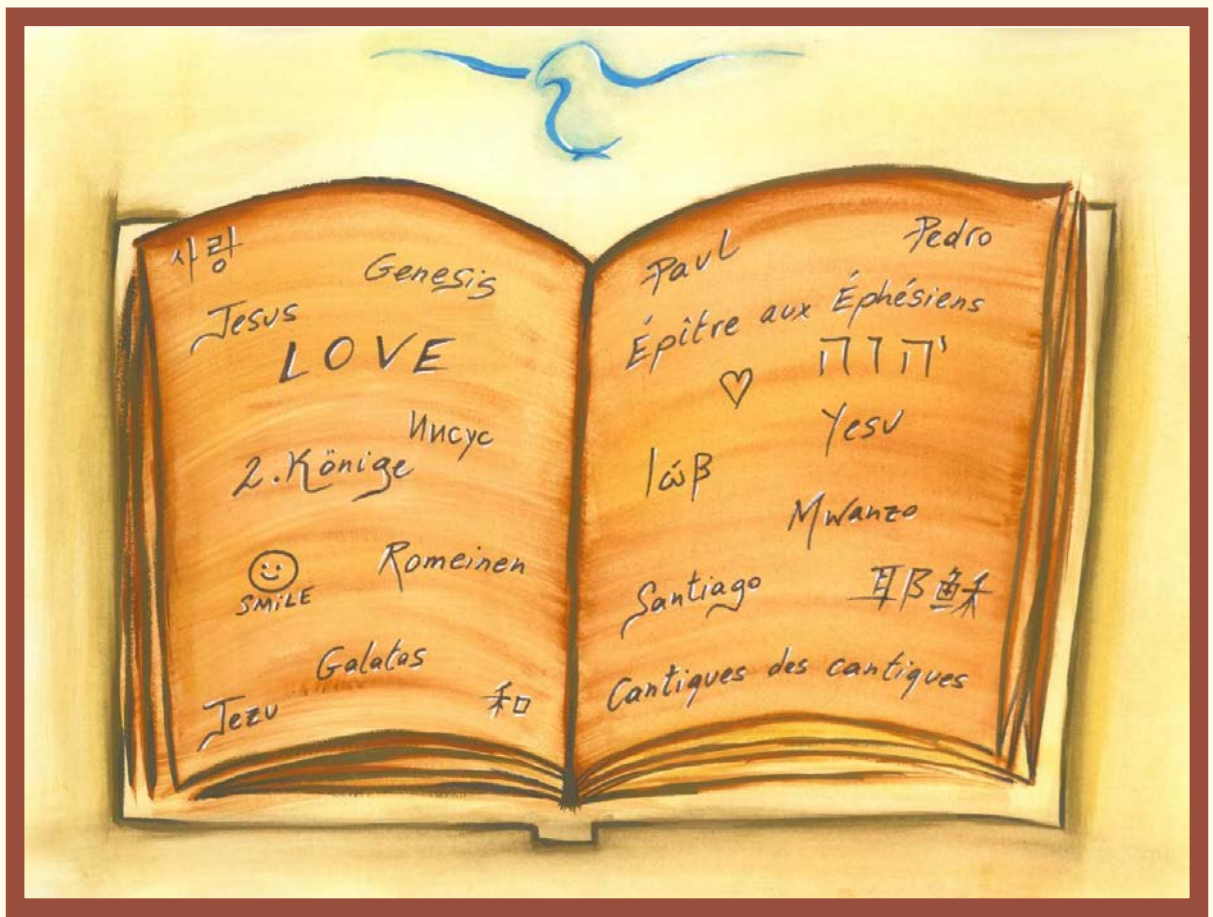 사랑
Genesis
Jesus
LOVE
Иисус
2.Könige
SMiLE
Romeinen
Galatas
Jezu
和
Paul
Pedro
Épître aux Éphésiens
יהוה
Yesu
Ιώβ
Mwanzo
Santiago
耶穌
Cantiques des cantiques